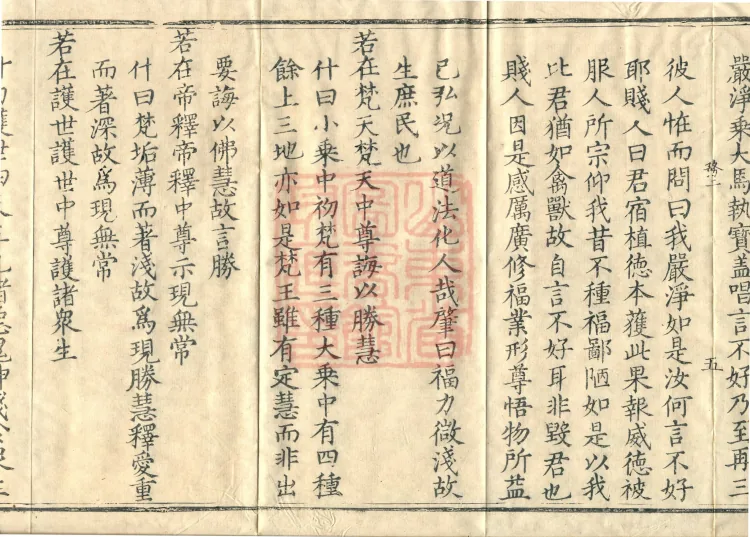 嚴淨乘大馬執寶盖唱言不好乃至再三
五
彼人恠而問曰我嚴淨如是汝何言不好
耶賤人曰君宿植德本獲此果報威德被
服人所宗仰我昔不種福鄙陋如是以我
比君猶如禽獸故自言不好耳非毀君也
賤人因是感厲廣修福業形尊悟物所益
已弘況以道法化人哉肇曰福力微淺故
生庶民也
若在梵天梵天中尊誨以勝慧
什曰小乘中初梵有三種大乘中有四種
餘上三地亦如是梵王雖有定慧而非出
要誨以佛慧故言勝
若在帝釋帝釋中尊示現無常
什曰梵垢薄而著淺故爲現勝慧釋愛重
而著深故爲現無常
若在護世護世中尊護諸衆生